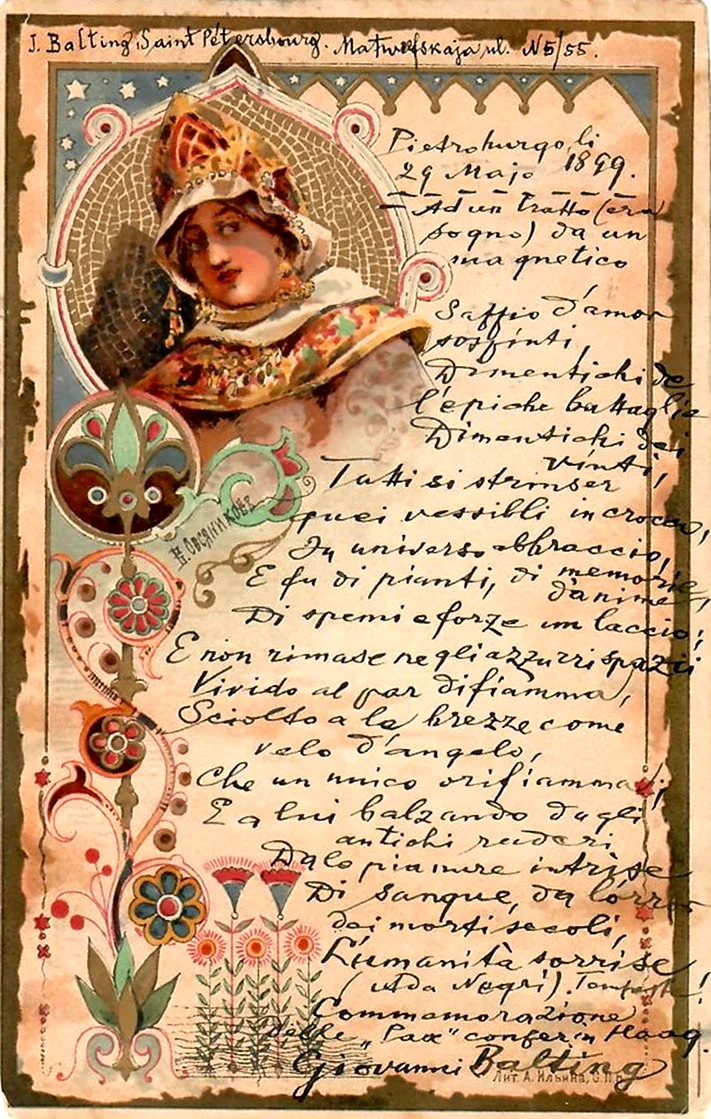 J. Balting, Saint Pétersbourg. Matwefskaja ul. N5/55.
Pietroburgo, li
29 Majo 1899.
Ad un tratto (era
sogno) da un
magnetico
Soffio d'amor
sospinti,
Dimentichi de
l'epiche battaglie
Dimentichi dei
vinti,
Tutti si strinser
quei vessilli in croce,
In universo abbraccio,
E fu di pianti, di memorie,
d'anime,
Di spemi e forze un laccio;
E non rimase negli azzurri spazii
Vivido al par di fiamma,
Sciolto a le brezze come
velo d'angelo,
Che un unico orifiamma;
E a lui balzando dagli
antichi ruderi
Da le pianure intrise
Di sangue, da l'orror
dei morti secoli,
L'umanità sorrise
(Ada Negri). Tempeste!
Commemorazione
delle „Pax" confer. in Haag.
Giovanni Balting
Н. Овсяниковъ
Лит. А. Ильина, С.П.Б.